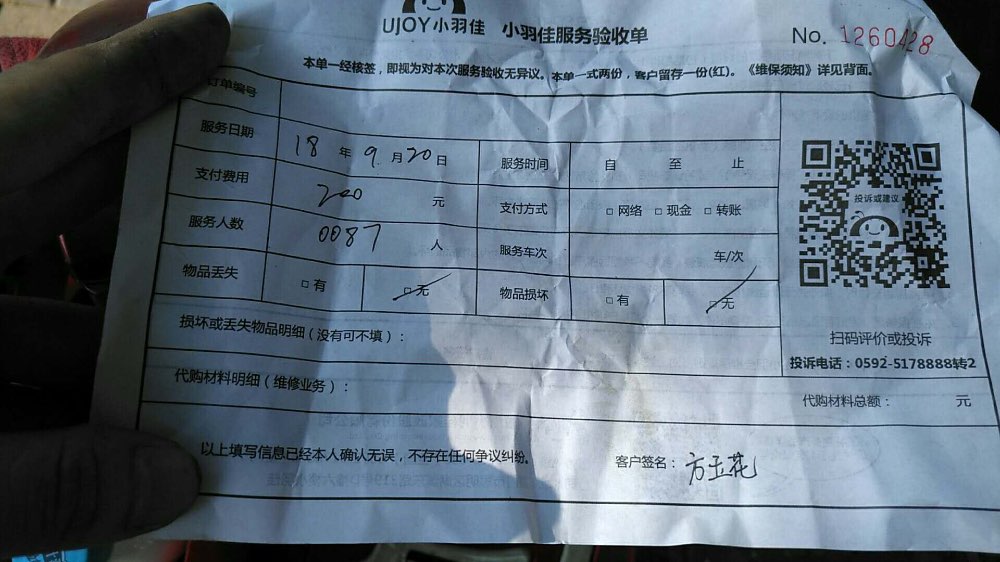 UJOY小羽佳 小羽佳服务验收单 No. 1260428
本单一经核签，即视为对本次服务验收无异议。本单一式两份，客户留存一份(红)。《维保须知》详见背面。
订单编号
服务日期 18 年 9 月 20 日 服务时间 自 至 止
支付费用 200 元 支付方式 □ 网络 □ 现金 □ 转账
服务人数 0087 人 服务车次 车/次
物品丢失 □ 有 □ 无 物品损坏 □ 有 □ 无
投诉或建议
扫码评价或投诉
投诉电话：0592-5178888转2
损坏或丢失物品明细（没有可不填）：
代购材料明细（维修业务）： 代购材料总额： 元
以上填写信息已经本人确认无误，不存在任何争议纠纷。 客户签名：方玉花